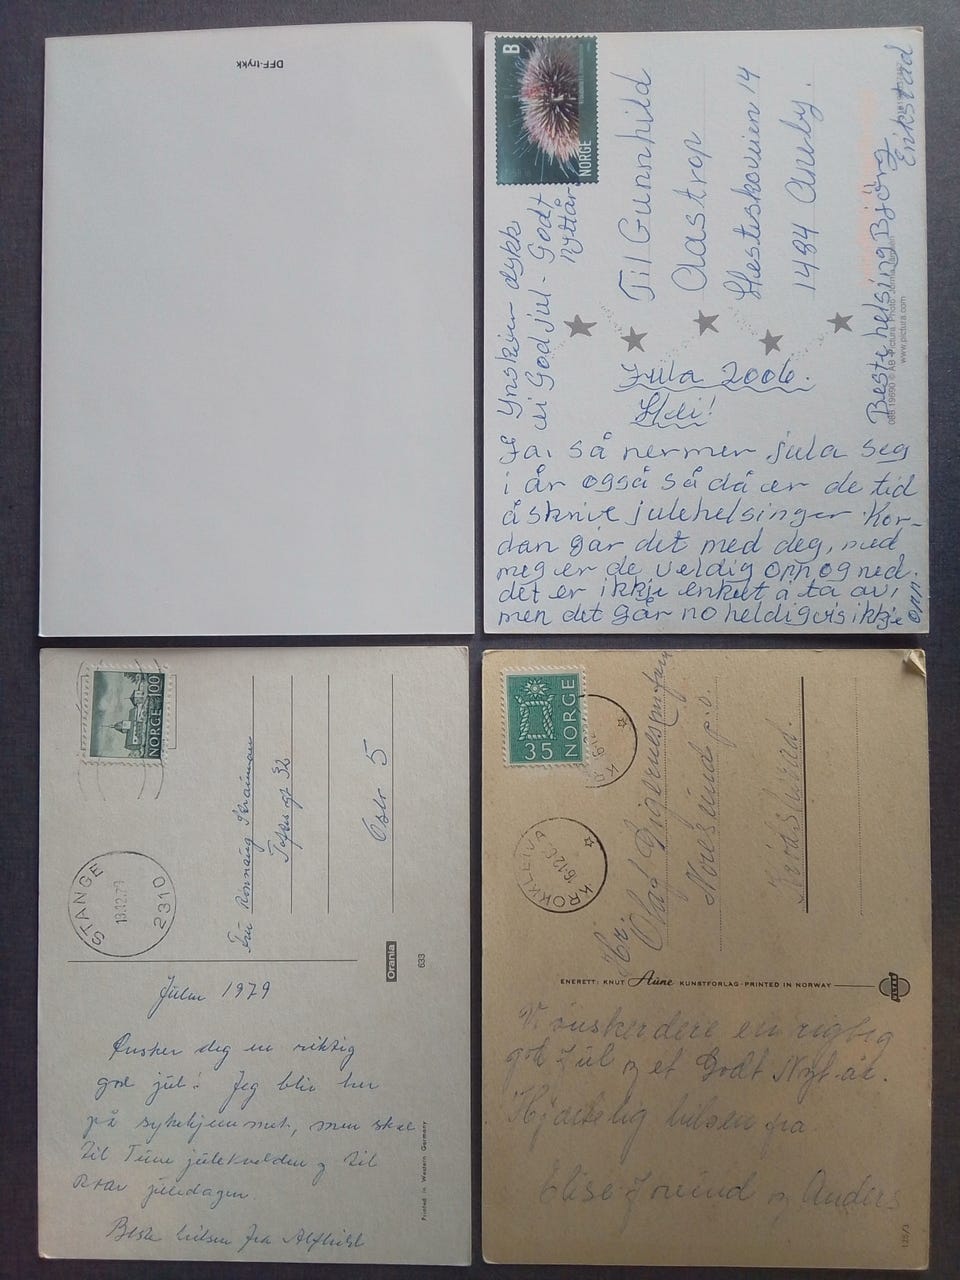 DFF-trykk
B
NORGE
Til Gunnhild
Aastrop
Hesteskoveien 14
1484 Aneby.
Jula 2006.
Hei!
Ja, så nermer jula seg
i år også så då er de tid
å skrive julehelsinger. Kor-
dan går det med deg, med
meg er de veldig opp og ned.
det er ikkje enkelt å ta av,
men det går no heldigvis ikkje
opp.
Ynskjer dykk
ei God jul - Godt
nyttår
Beste helsing Bjørg
Erikstad
© AB Pictura. Photo
www.pictura.com
NORGE 100
STANGE
2310
Fru Rønnaug
gt 32
Oslo 5
Orania
633
Julen 1979
Ønsker deg en riktig
god jul! Jeg blir her
på sykehjemmet, men skal
til Tune julekvelden og til
juledagen.
Beste hilsen fra Alfhild
Printed in Western Germany
35 NORGE
KROKKLEIVA
Hr.
Olaf
p.o.
ENERETT: KNUT Aune KUNSTFORLAG - PRINTED IN NORWAY
ULTRA
Vi ønsker dere en rigtig
god Jul og et Godt Nyt-år.
Hjærtelig hilsen fra
Elise Jorund og Anders
125/3